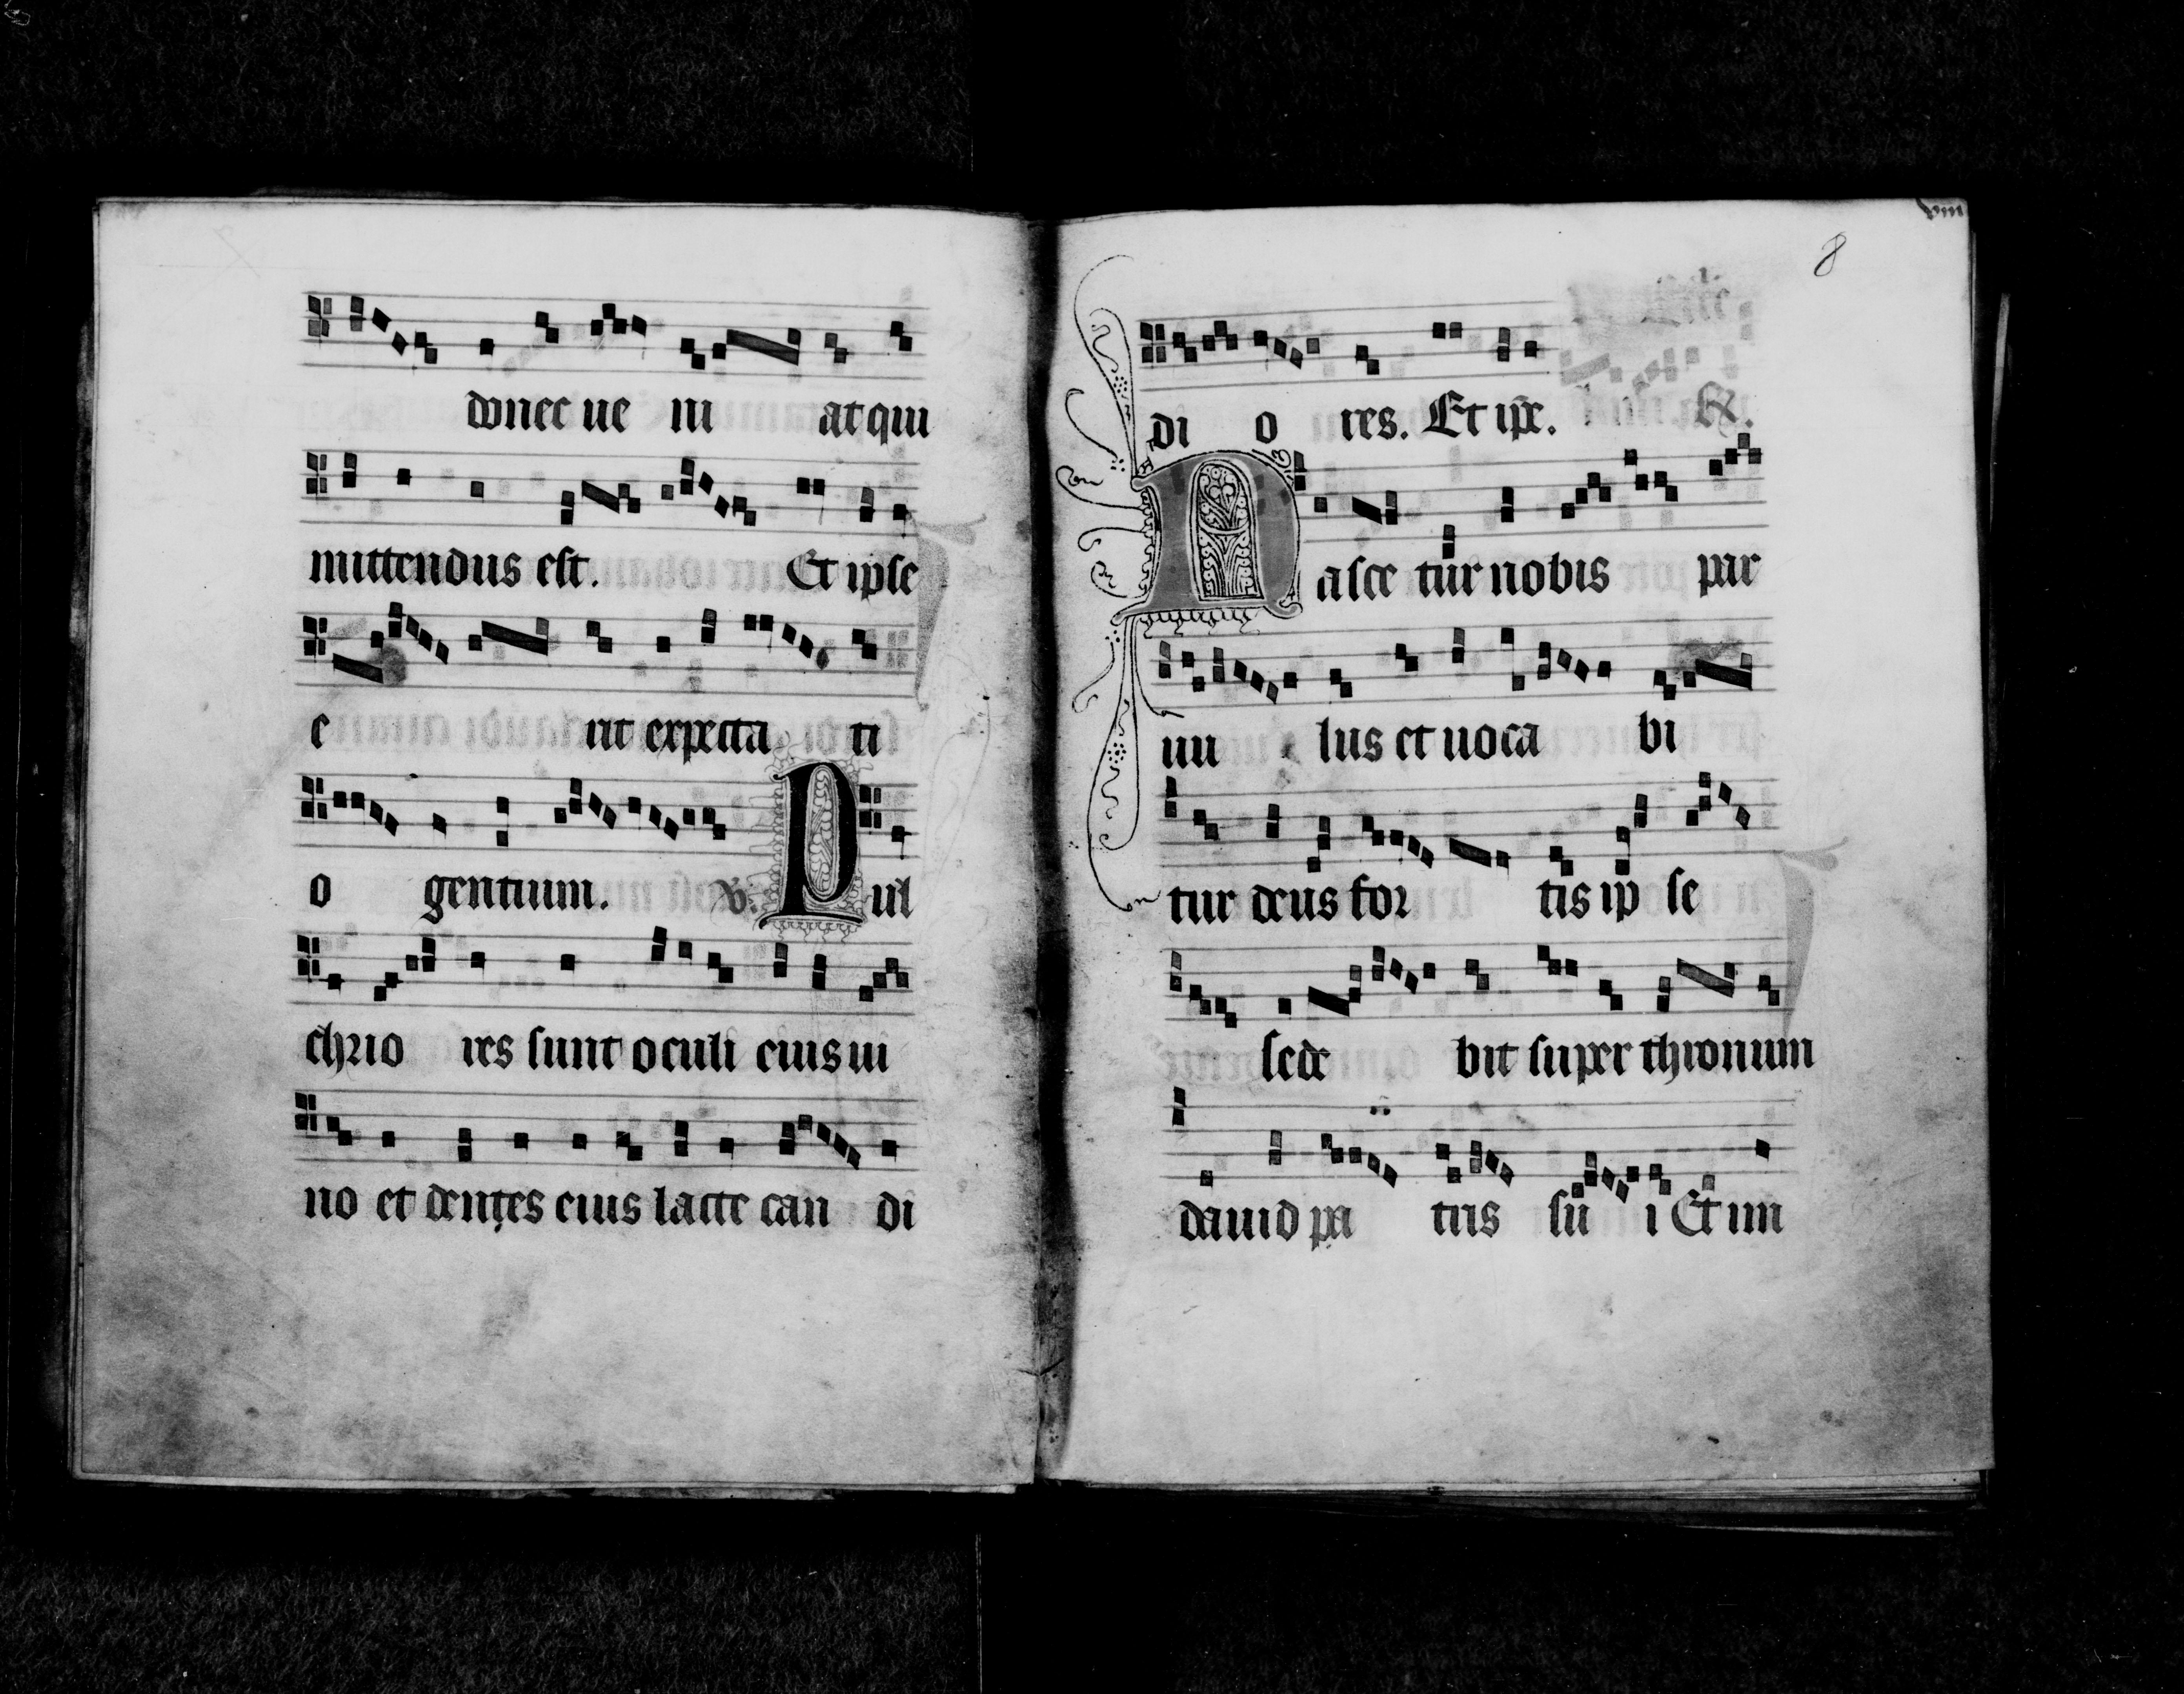 donec ue ni at qui
mittendus est. Et ipse
e rit expecta ti
o gentium. v. Pul
chrio res sunt oculi eius ui
no et dentes eius lacte can di
viii
8
di o res. Et ipse. R.
Nasce tur nobis par
uu lus et uoca bi
tur deus for tis ip se
sede bit super thronum
dauid pa tris su i Et im